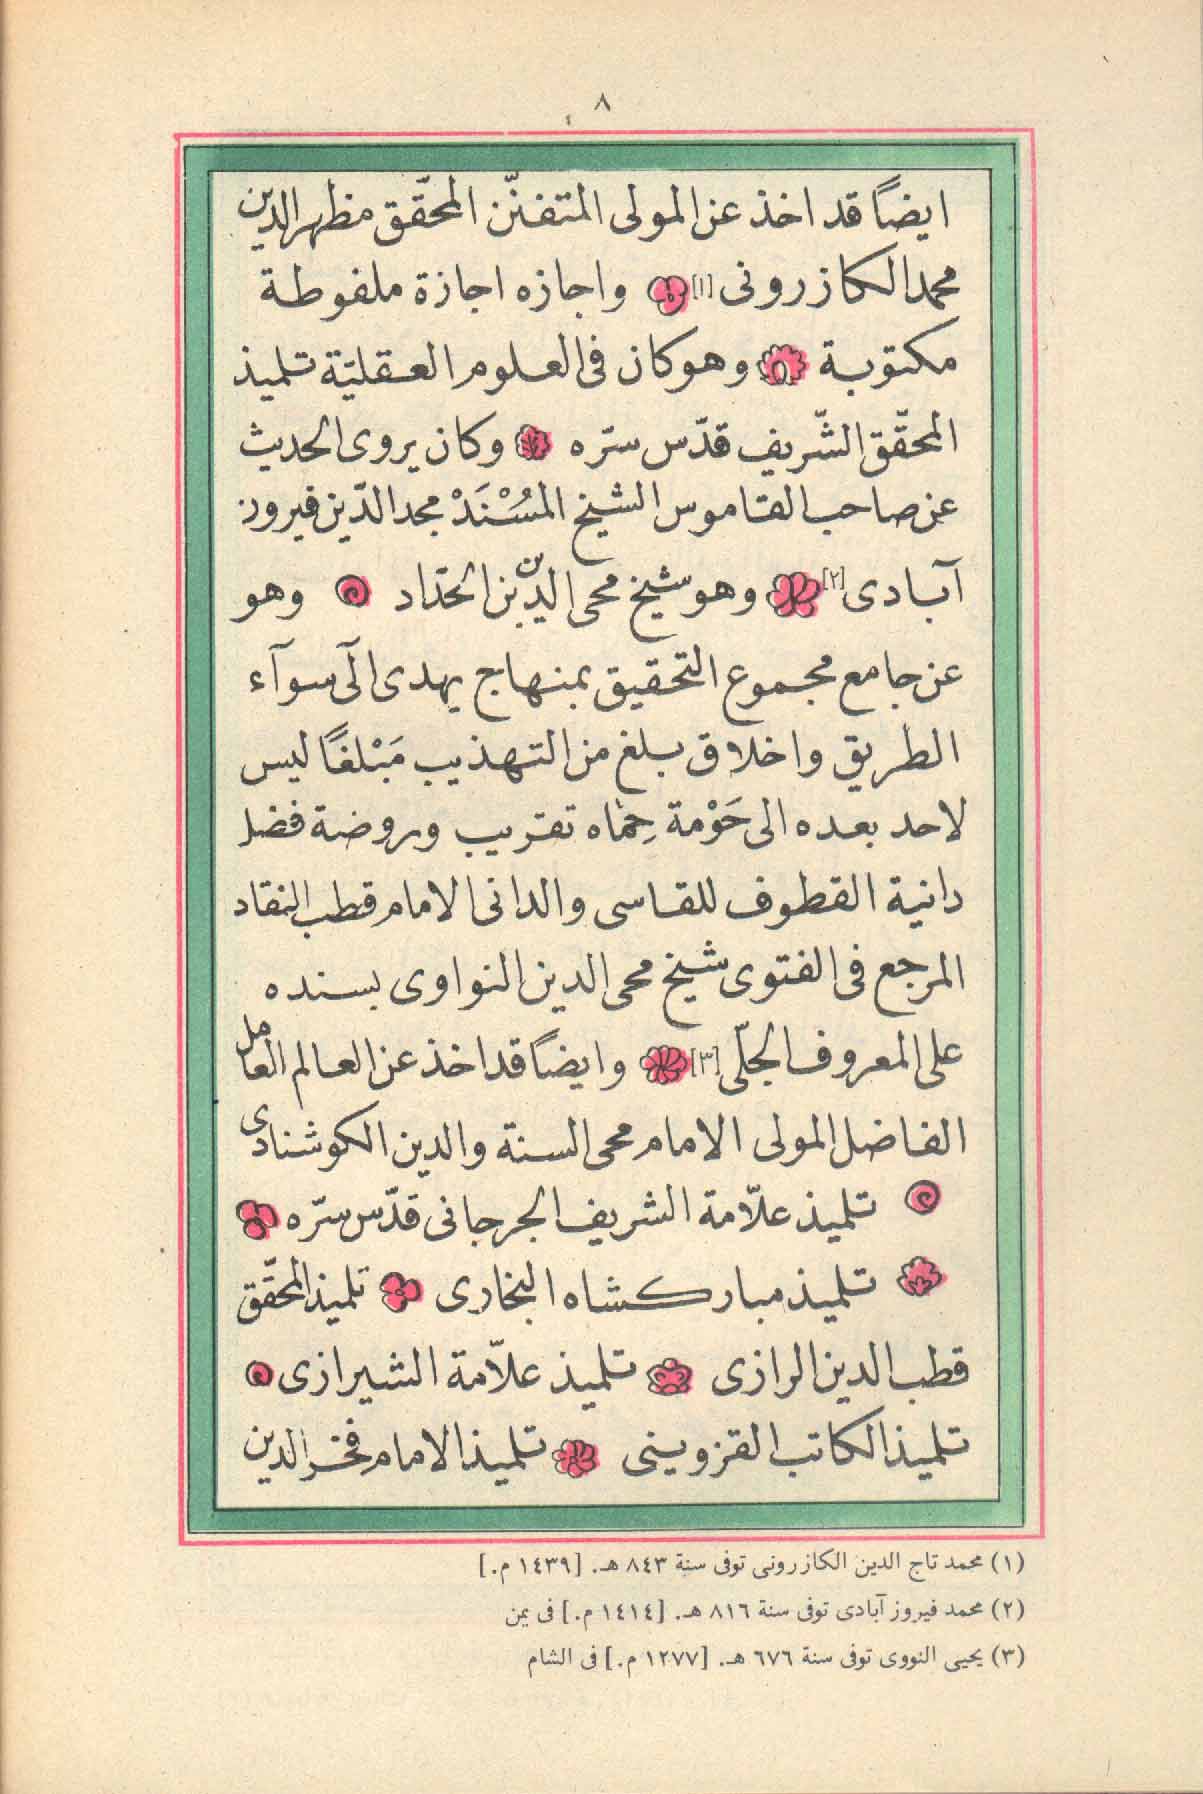 ٨
ايضاً قد اخذ عن المولى المتفنّن المحقّق مظهر الدين
محمد الكازرونى [١] واجازه اجازة ملفوظة
مكتوبة وهو كان فى العلوم العقليّة تلميذ
المحقّق الشّريف قدّس سرّه وكان يروى الحديث
عن صاحب القاموس الشيخ المُسْنَدْ مجد الدّين فيروز
آبادى [٢] وهو شيخ محى الدّين بن الحدّاد وهو
عن جامع مجموع التحقيق بمنهاج يهدى الى سوآء
الطريق واخلاق بلغ من التهذيب مَبْلغًا ليس
لاحد بعده الى حَوْمة حِمٰاه تقريب وروضة فضل
دانية القطوف للقاسى والدانى الامام قطب النقاد
المرجع فى الفتوى شيخ محى الدين النواوى بسنده
على المعروف الجلّى [٣] وايضاً قد اخذ عن العالم العامل
الفاضل المولى الامام محى السنة والدين الكوشنادى
تلميذ علاّمة الشريف الجرجانى قدّس سرّه
تلميذ مباركشاه البخارى تلميذ المحقّق
قطب الدين الرازى تلميذ علاّمة الشيرازى
تلميذ الكاتب القزوينى تلميذ الامام فخر الدين
(١) محمد تاج الدين الكازرونى توفى سنة ٨٤٣ هـ. [١٤٣٩ م.]
(٢) محمد فيروز آبادى توفى سنة ٨١٦ هـ. [١٤١٤ م.] فى يمن
(٣) يحيى النووى توفى سنة ٦٧٦ هـ. [١٢٧٧ م.] فى الشام